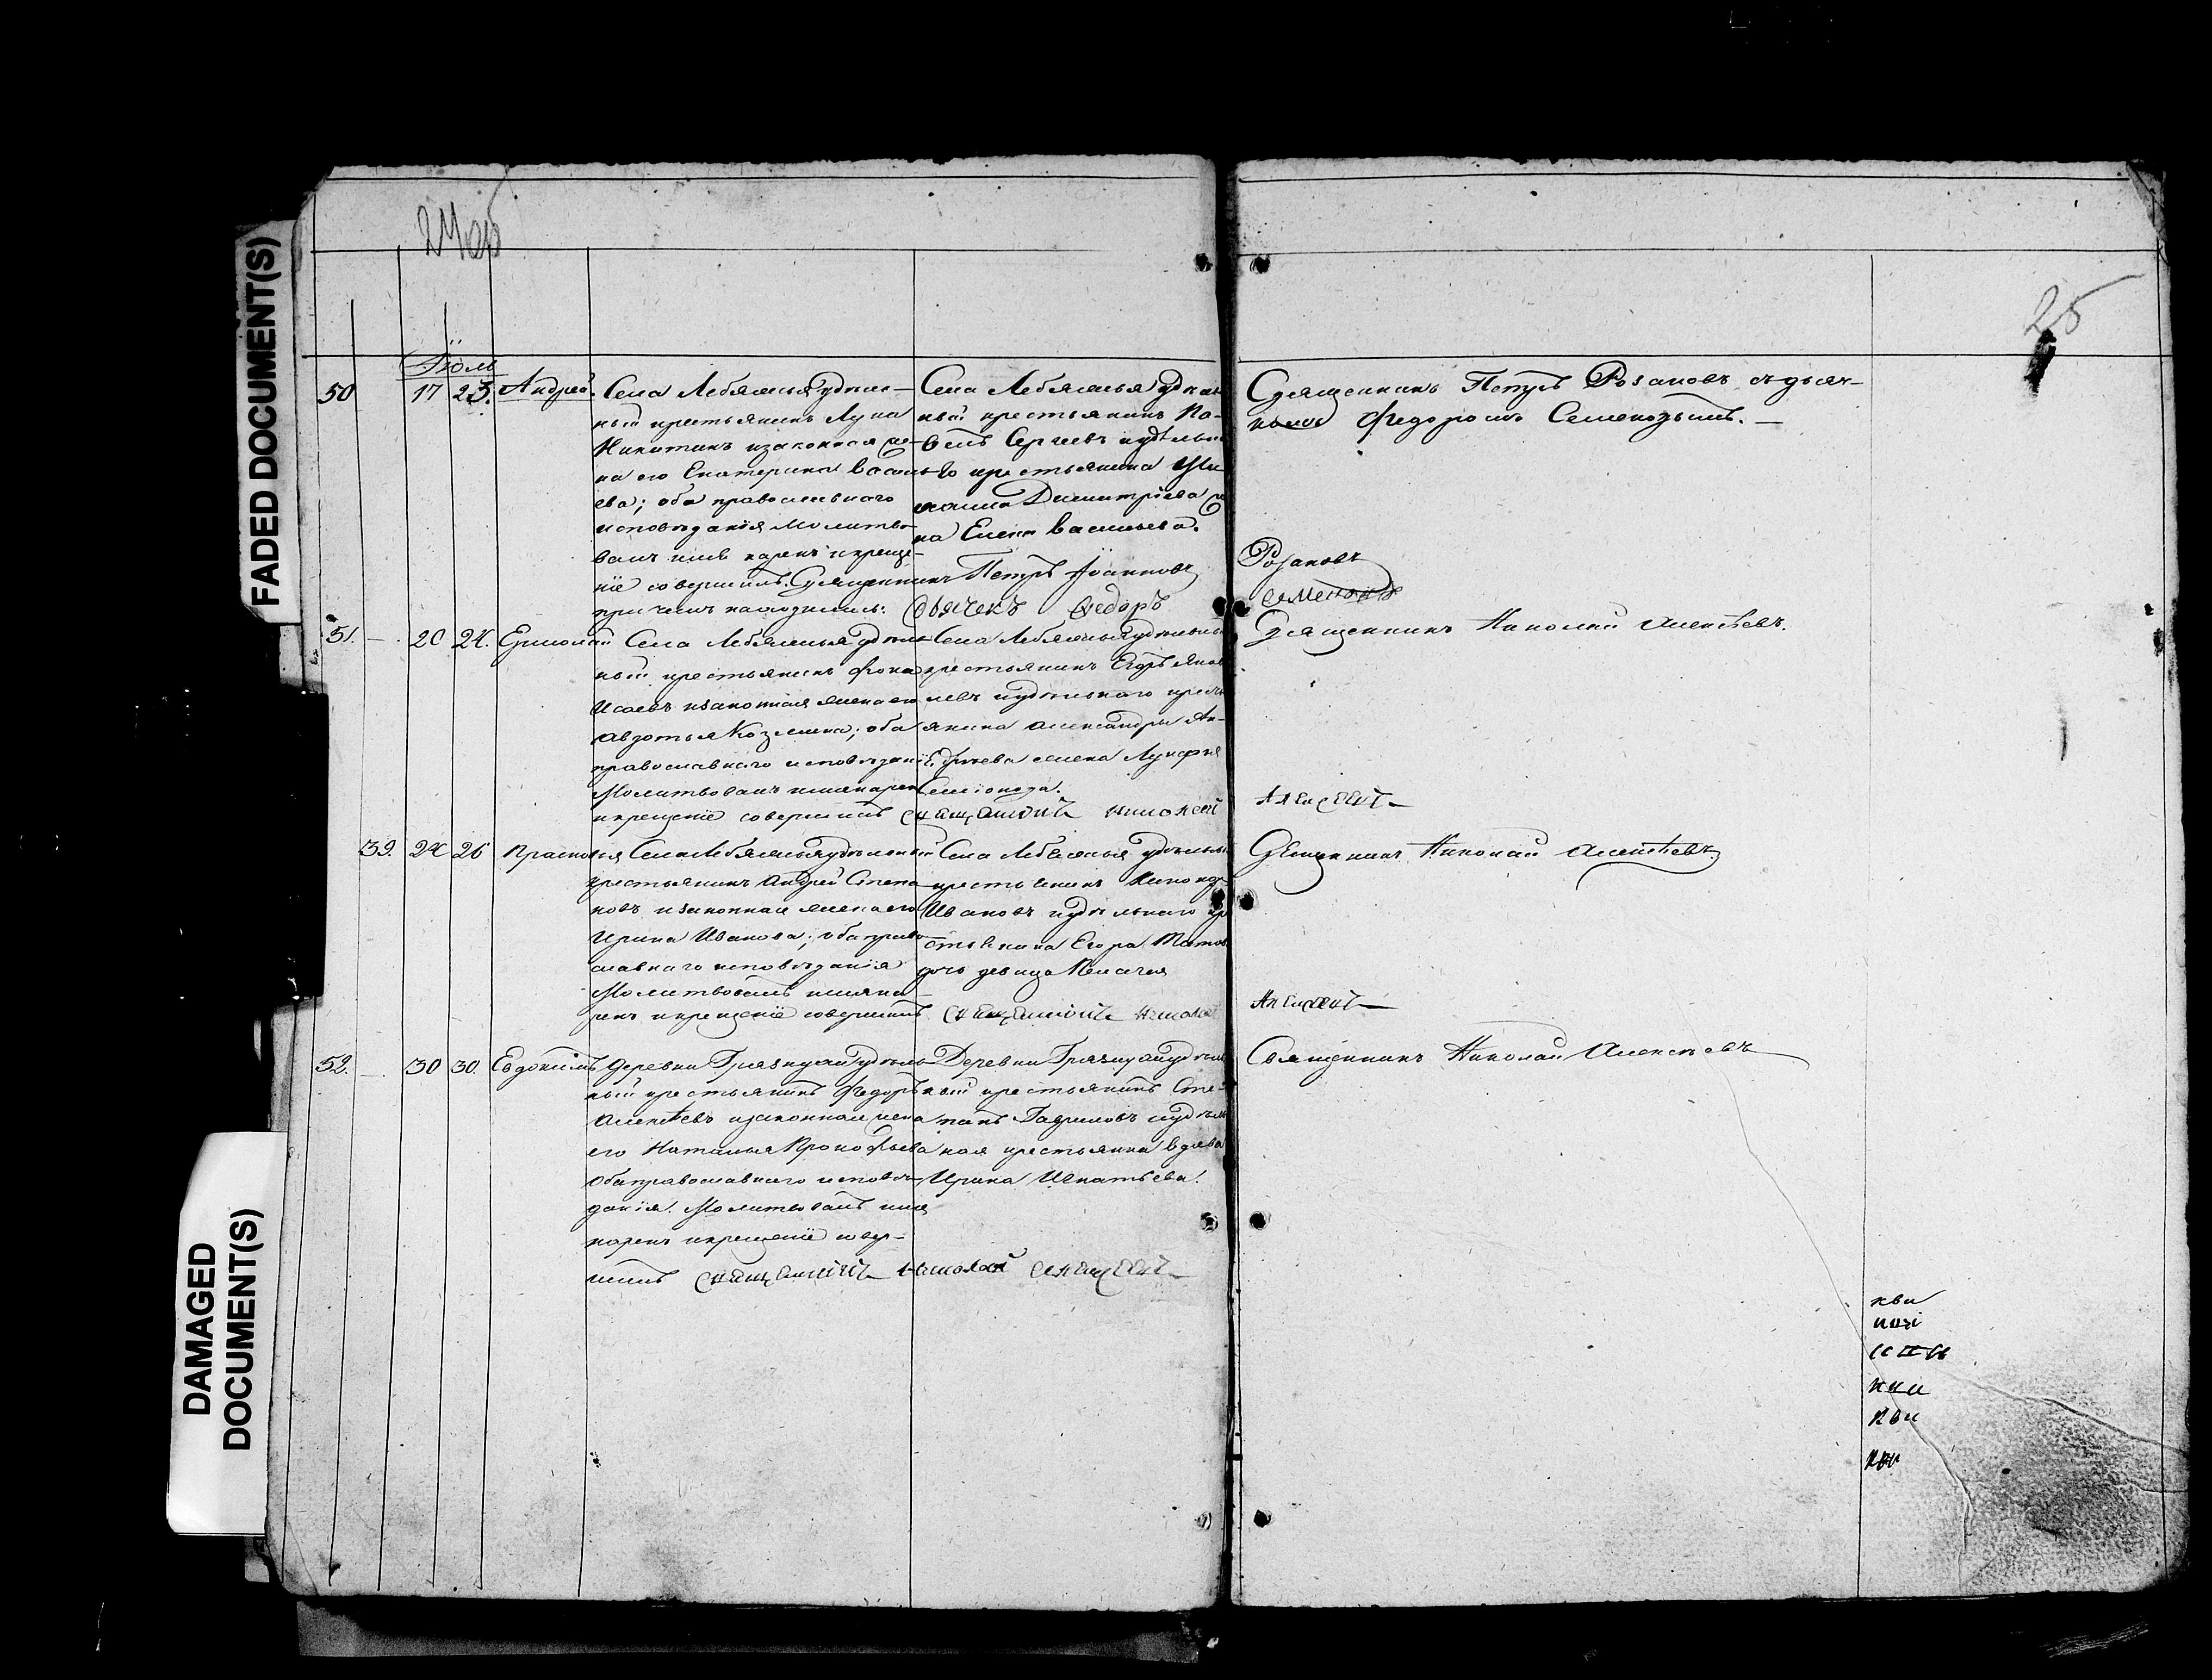 FADED DOCUMENT(S)
DAMAGED
DOCUMENT(S)
24об
25
Іюль
50 17 23. Андрей.
Села Лебяжья удѣль-
ный крестьянинъ Лука
Никитинъ и законная же-
на его Екатерина Василь-
ева; оба православнаго
исповѣданія Молитво-
валъ имя нарекъ и креще-
ніе совершилъ. Священникъ Петръ Іоанновъ Розановъ
при чемъ находились: Дьячекъ Федоръ Семеновъ
Села Лебяжья удѣль
ный крестьянинъ Па-
велъ Сергеевъ и удѣльна
го крестьянина
Димитріева
на Елена Васильева.
Священникъ Петръ Розановъ съ дьяч-
комъ Федоромъ Семеновымъ.
51. — 20 24. Ермолай
Села Лебяжья удѣль-
ный крестьянинъ Фока
Исаевъ и законная жена его
Авдотья Козмина; оба
православнаго исповѣдані
Молитвовалъ имя нарек
и крещеніе совершилъ Священникъ Николай Алексеевъ
Села Лебяжья удѣльны
крестьянинъ Егоръ Яков
левъ и удѣльнаго крест
янина Александры Ан-
жена Лукерья
Священникъ Николай Алексѣевъ.
39. 24 26 Прасковья
Села Лебяжья удѣльный
крестьянинъ Андрей Степа
новъ и законная жена его
Ирина Иванова; оба право
славнаго исповѣданія
Молитвовалъ имя на-
рекъ и крещеніе совершилъ Священникъ Николай Алексеевъ
Села Лебяжья удѣльны
крестьянинъ
Ивановъ и удѣльнаго кр
стьянина Егора
дочь девица Пелагея
Священникъ Николай Алексѣевъ.
52. — 30 30. Евдокимъ
Деревни Грязнухи удѣль
ный крестьянинъ Федоръ
Алексѣевъ и законная жена
его Наталья Прокофьева
оба православнаго исповѣ-
данія. Молитвовалъ имя
нарекъ и крещеніе совер-
шилъ Священникъ Николай Алексеевъ
Деревни Грязнухи удѣль
ный крестьянинъ Сте-
панъ Гавриловъ и удѣль
ная крестьянка вдова
Ирина Игнатьева.
Священникъ Николай Алексѣевъ